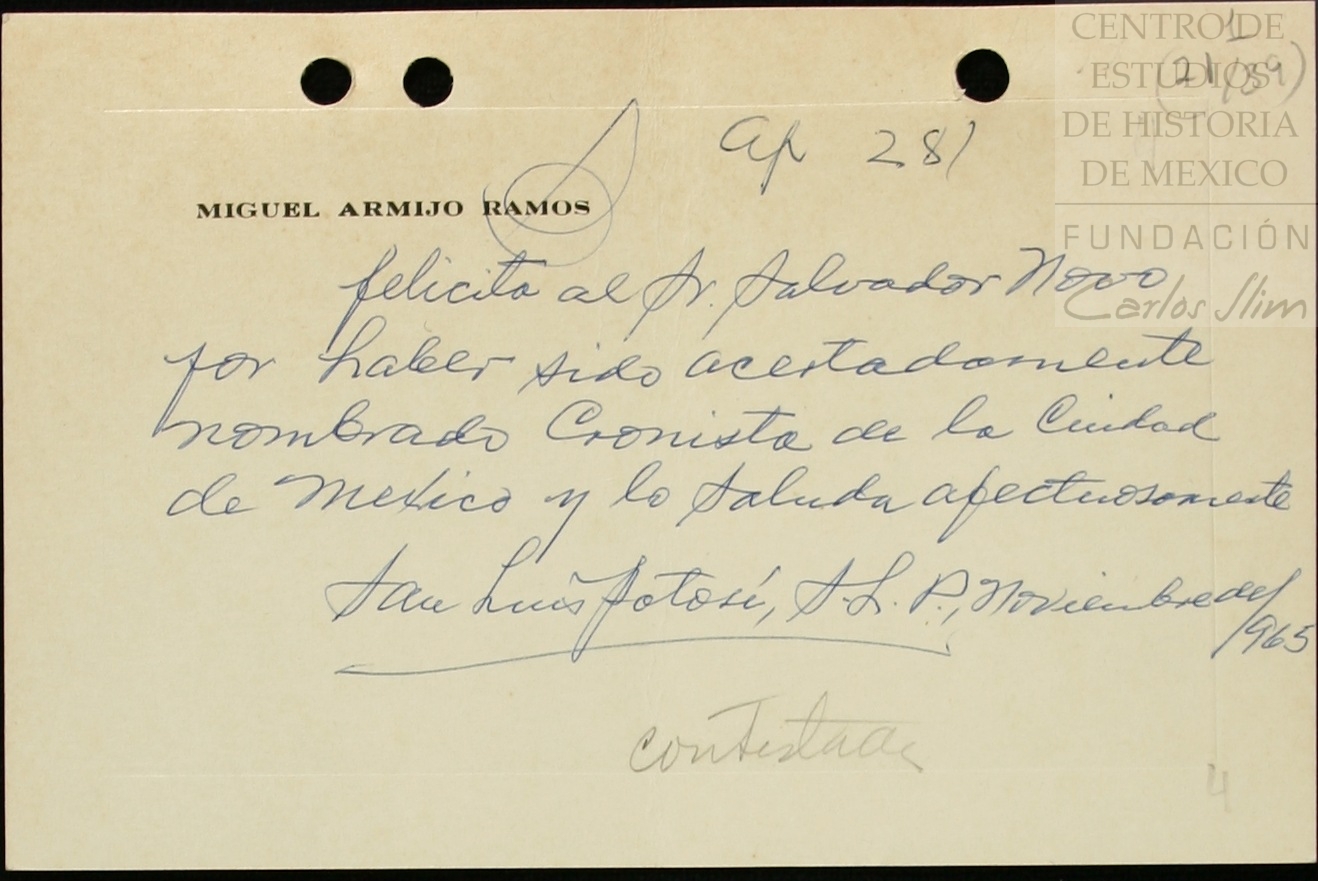 CENTRO DE
ESTUDIOS
DE HISTORIA
DE MEXICO
FUNDACIÓN
Carlos Slim
1
(21/39)
Ap 281
MIGUEL ARMIJO RAMOS
felicita al Sr. Salvador Novo
por haber sido acertadamente
nombrado Cronista de la Ciudad
de Mexico y lo saluda afectuosamente
San Luis Potosí, S. L. P., Noviembre de
1965
contestada
4